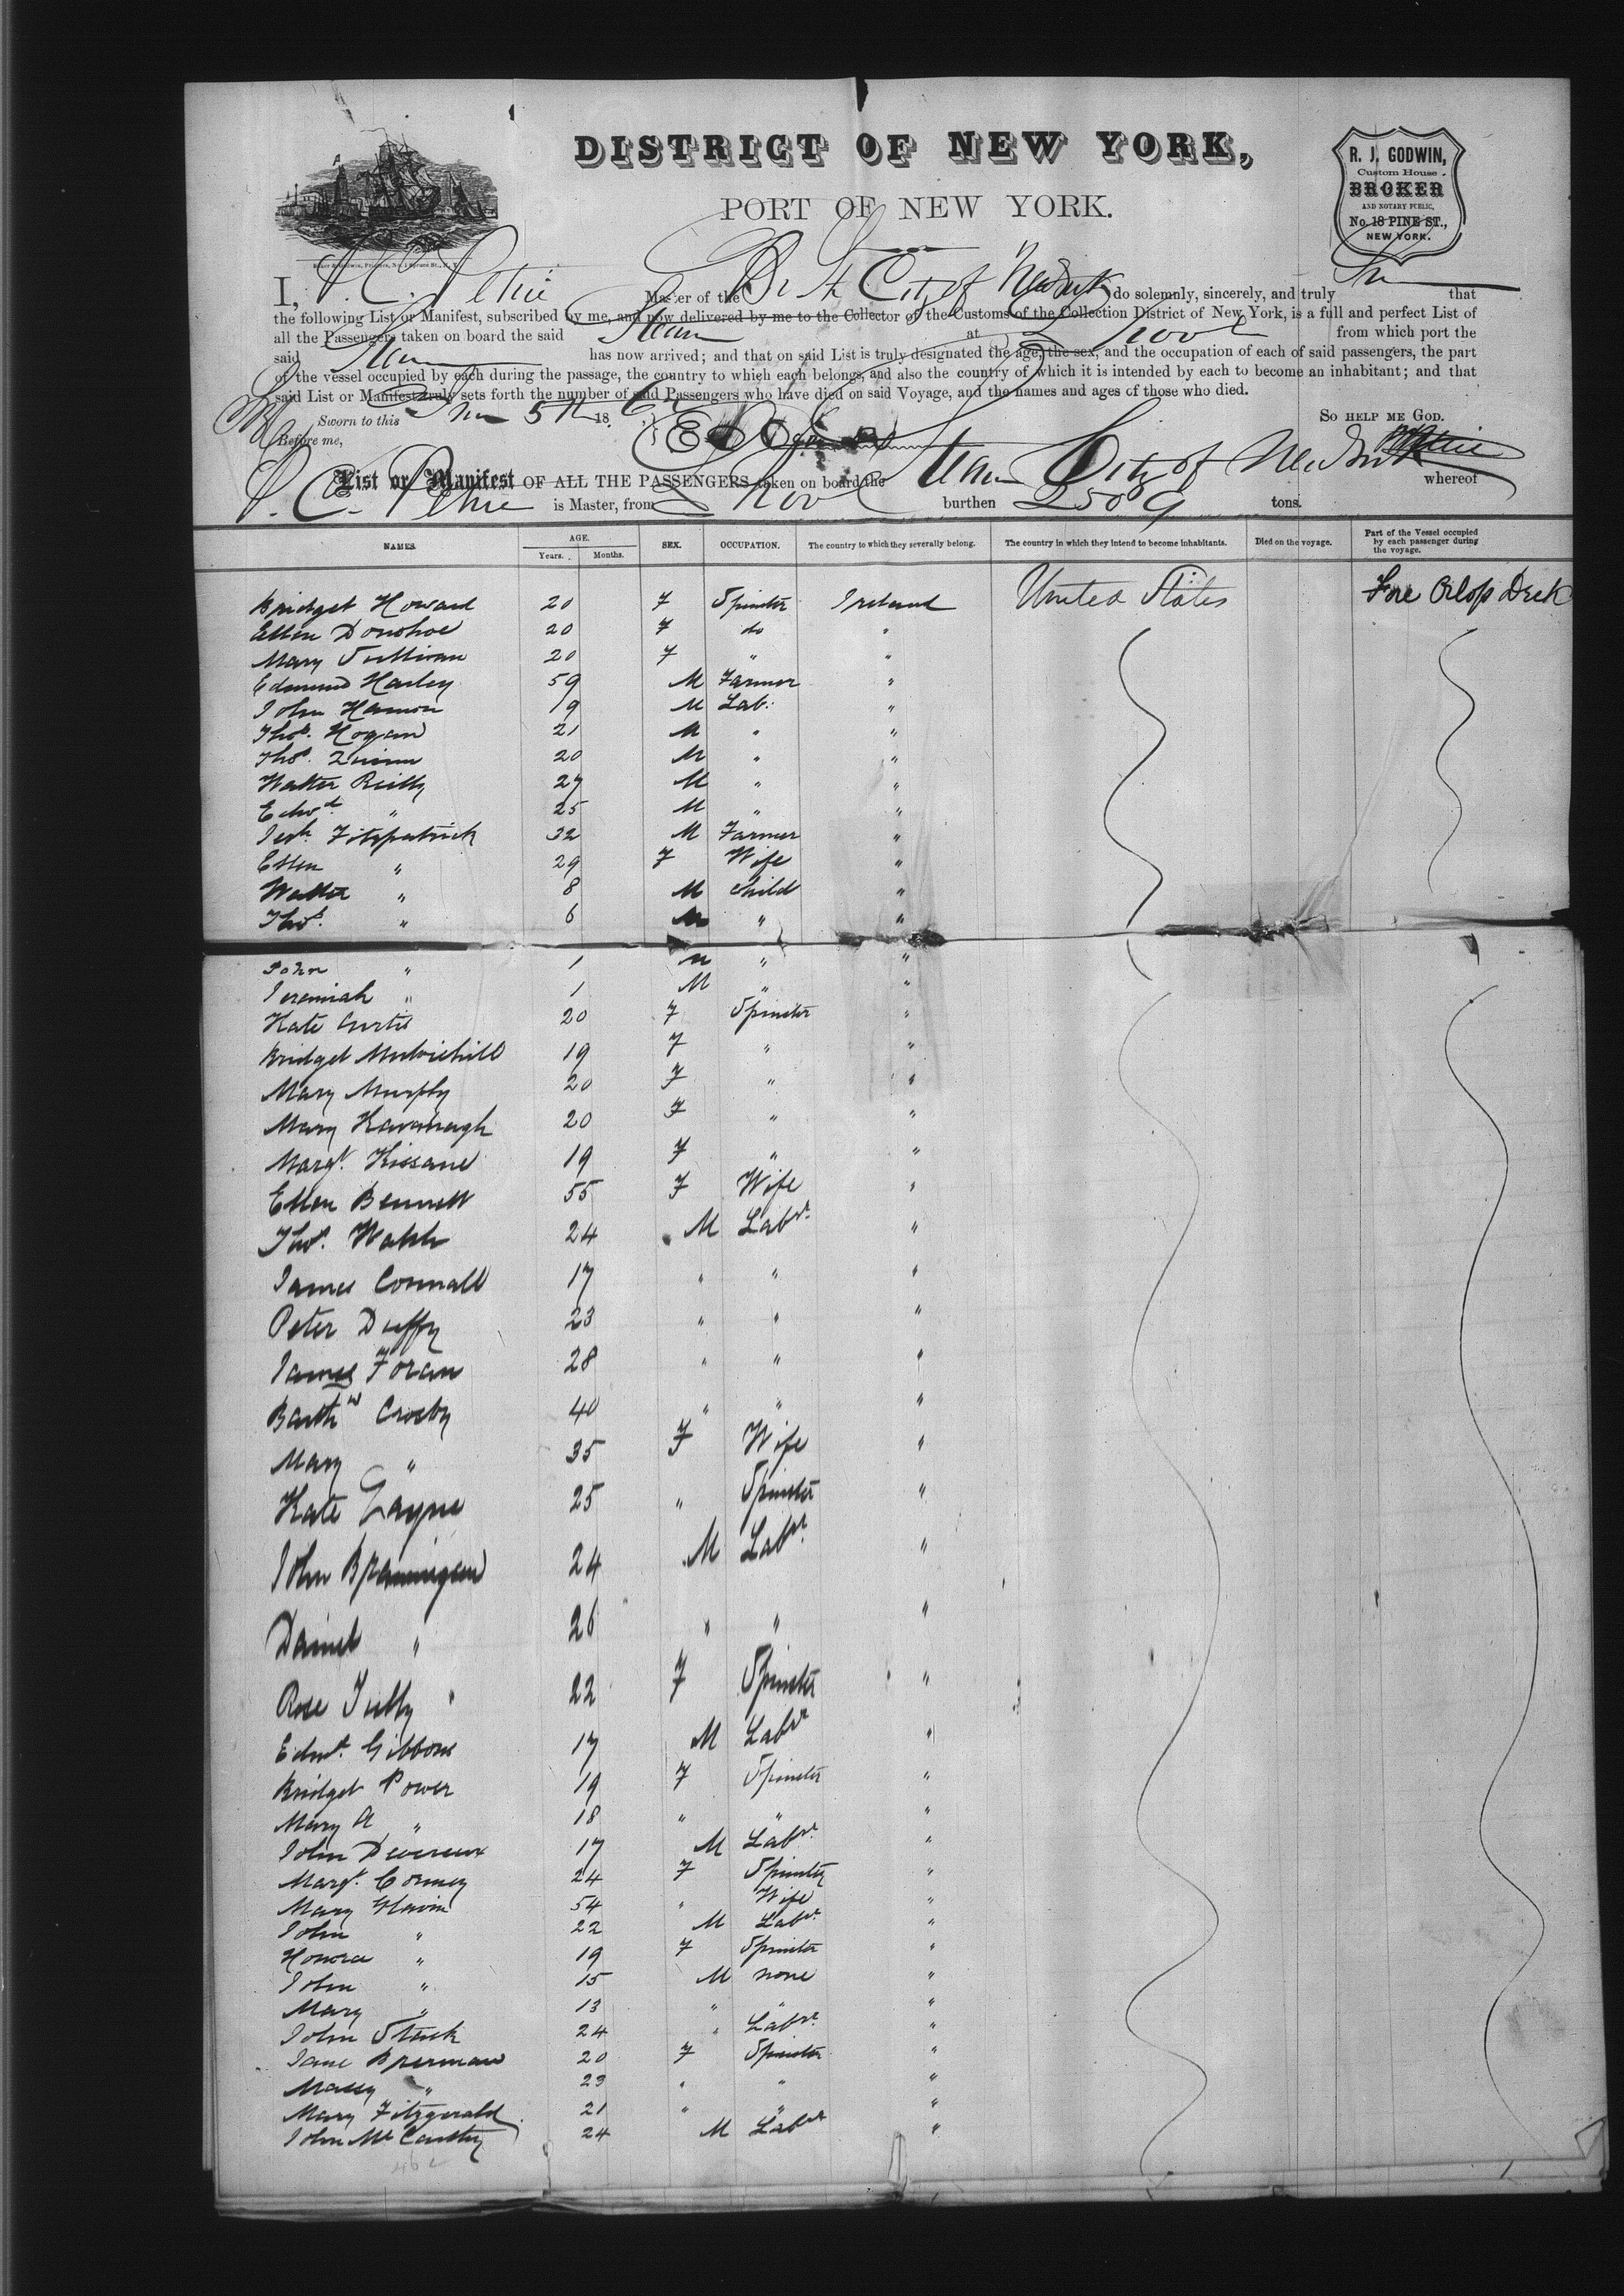 DISTRICT OF NEW YORK,
PORT OF NEW YORK.
R. J. GODWIN,
Custom House
BROKER
AND NOTARY PUBLIC,
No. 18 PINE ST.,
NEW YORK.
I, P. C. Petrie Master of the Br St City of New York do solemnly, sincerely, and truly that
the following List or Manifest, subscribed by me, and now delivered by me to the Collector of the Customs of the Collection District of New York, is a full and perfect List of
all the Passengers taken on board the said Steam at L'pool from which port the
said Steam has now arrived; and that on said List is truly designated the age, the sex, and the occupation of each of said passengers, the part
of the vessel occupied by each during the passage, the country to which each belongs, and also the country of which it is intended by each to become an inhabitant; and that
said List or Manifest truly sets forth the number of said Passengers who have died on said Voyage, and the names and ages of those who died.
Sworn to this 5th 18 SO HELP ME GOD.
Before me,
List or Manifest OF ALL THE PASSENGERS taken on board the Steam City of New York whereof
P. C. Petrie is Master, from L'pool burthen 2509 tons.
NAMES. AGE. SEX. OCCUPATION. The country to which they severally belong. The country in which they intend to become inhabitants. Died on the voyage. Part of the Vessel occupied by each passenger during the voyage.
Years. Months.
Bridget Howard 20 F Spinster Ireland United States Fore Orlop Deck
Ellen Donohoe 20 F do "
Mary Sullivan 20 F " "
Edmund Harley 59 M Farmer "
John Hamon 19 M Lab: "
Thos. Hogan 21 M " "
Thos. Quinn 20 M " "
Walter Reilly 27 M " "
Edwd " 25 M " "
Jerh. Fitzpatrick 32 M Farmer "
Ellen " 29 F Wife "
Walter " 8 M Child "
Thos. " 6 M " "
John " 1 M " "
Jeremiah " 1 M " "
Kate Curtis 20 F Spinster "
Bridget Mulvihill 19 F " "
Mary Murphy 20 F " "
Mary Kavanagh 20 F " "
Margt. Kissane 19 F " "
Ellen Bennett 55 F Wife "
Thos. Walsh 24 M Labr. "
James Connall 17 " " "
Peter Duffy 23 " " "
James Foran 28 " " "
Barthw Crosby 40 " " "
Mary " 35 F Wife "
Kate Gayne 25 " Spinster "
John Brannigan 24 M Labr. "
Daniel " 26 " " "
Rose Tully 22 F Spinster "
Edwd. Gibbons 17 M Labr "
Bridget Power 19 F Spinster "
Mary A " 18 " " "
John Devereux 17 M Labr. "
Margt. Cormey 24 F Spinster "
Mary Glavin 54 " Wife "
John " 22 M Labr. "
Honora " 19 F Spinster "
John " 15 M none "
Mary " 13 " " "
John Stack 24 " Labr. "
Jane Brennan 20 F Spinster "
Massy " 23 " " "
Mary Fitzgerald 21 " " "
John Mc Carthy 24 M Labr "